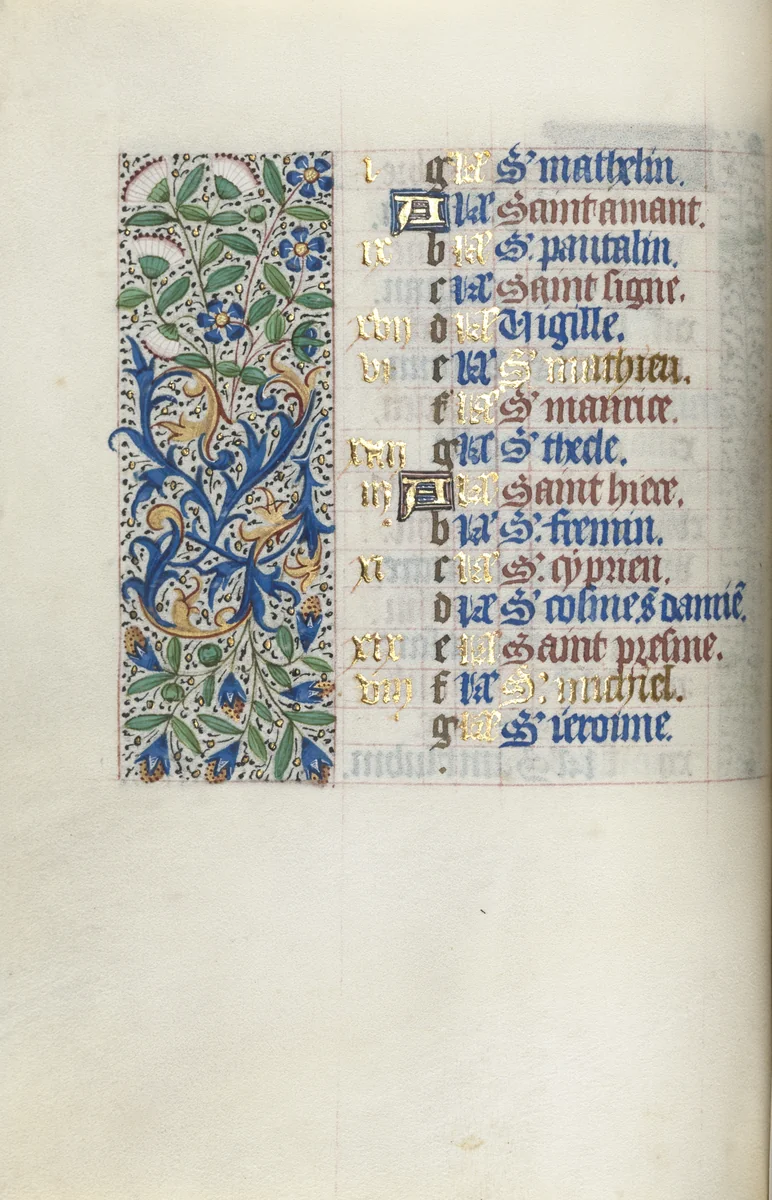 i g kł S' mathelin.
A kł Saint amant.
ix b kł S'. pantalin.
c kł Saint signe.
xvij d kł Vigille.
vi e kł S' mathieu.
f kł S' maurice.
g kł S' thecle.
iij A kł Saint hiere.
b kł S'. fremin.
xi c kł S'. cyprien.
d kł S' cosme. s damiē.
xix e kł Saint presme.
viij f kł S'. michiel.
g kł S' ieroime.